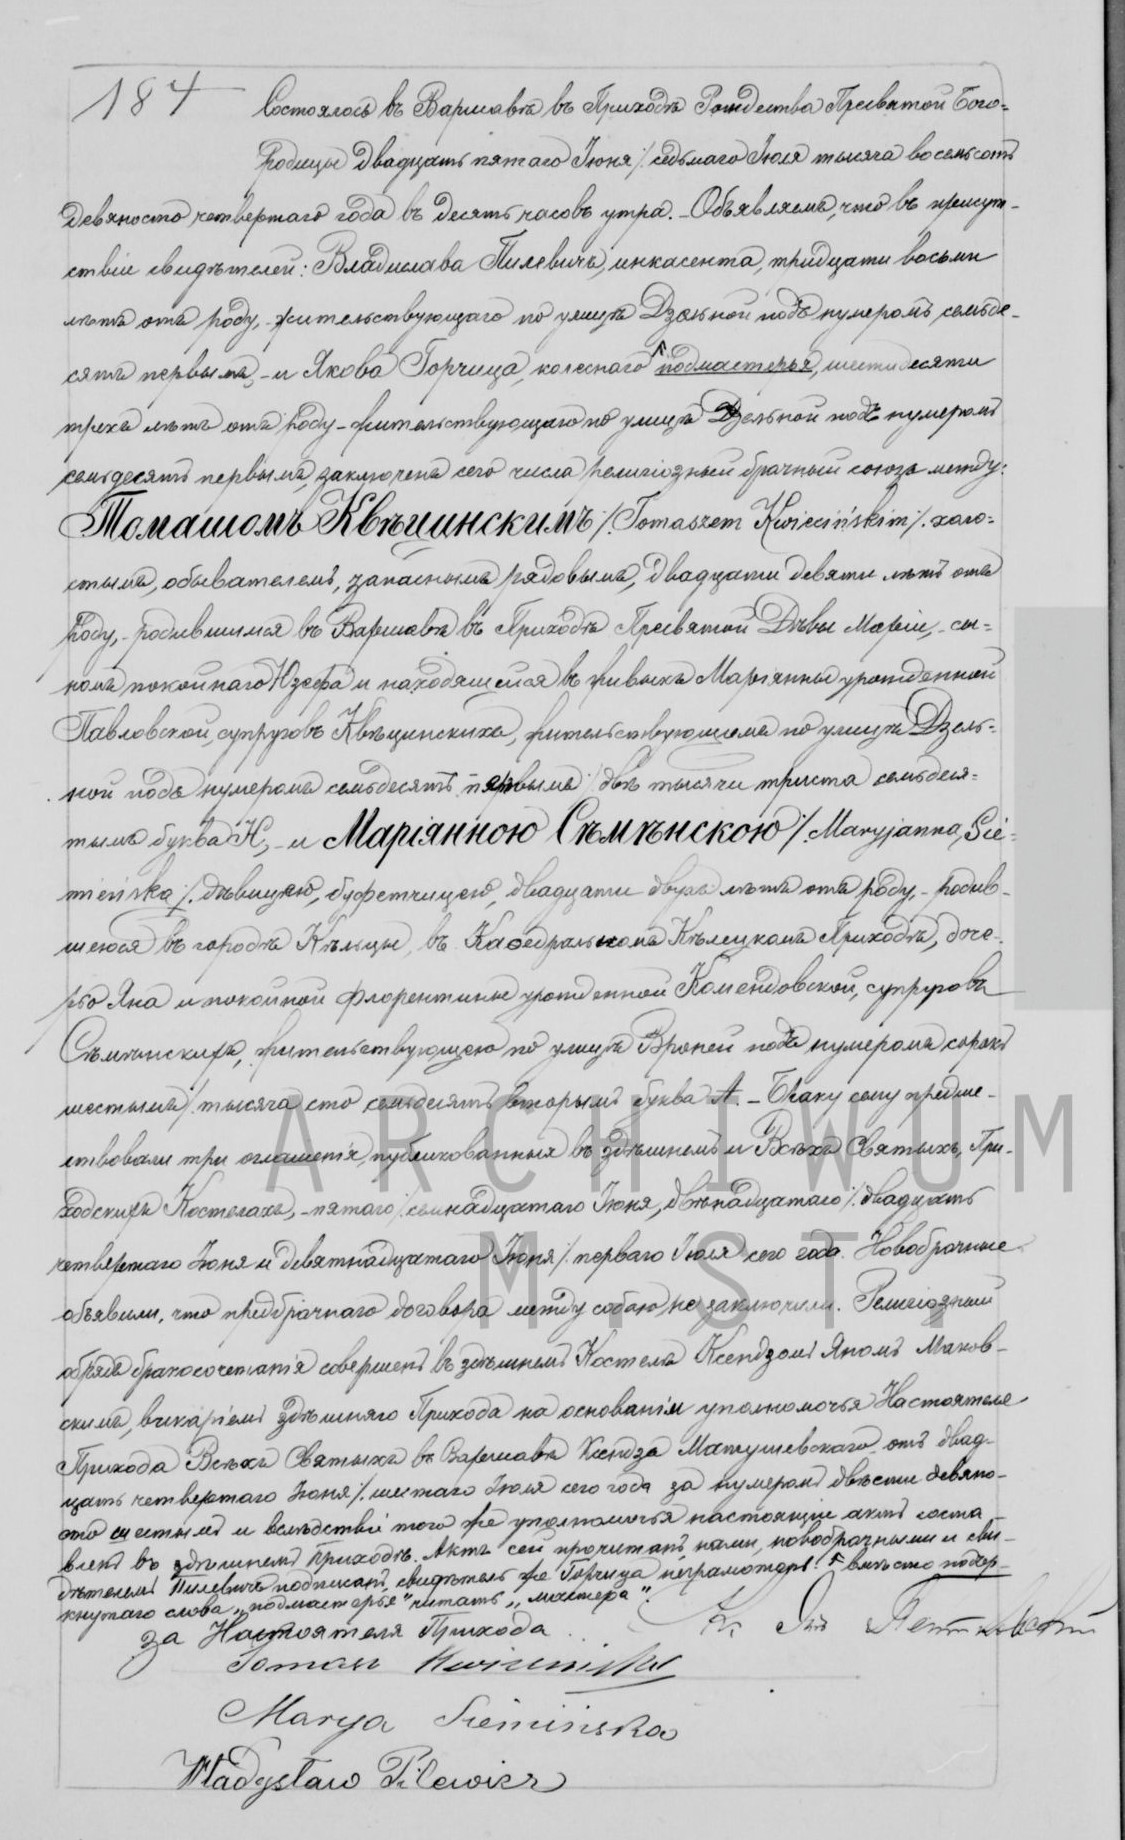 184
Состоялось въ Варшавѣ въ Приходѣ Рождества Пресвятой Бого-
родицы двадцать пятаго Іюня /. седьмаго Іюля тысяча восемьсотъ
девяносто четвертаго года въ десять часовъ утра. - Объявляемъ, что въ присут-
ствіи свидѣтелей: Владислава Пилевичъ, инкасента, тридцати восьми
лѣтъ отъ роду, - жительствующаго по улицѣ Дзельной подъ нумеромъ семьде-
сятъ первымъ, - и Якова Горчица, колеснаго подмастерья, шестидесяти
трехъ лѣтъ отъ роду - жительствующаго по улицѣ Дзельной подъ нумеромъ
семьдесятъ первымъ, заключенъ сего числа религіозный брачный союзъ между:
Томашомъ Квѣцинскимъ /. Tomaszem Kwiecińskim /. холо-
стымъ, обывателемъ, запаснымъ рядовымъ, двадцати девяти лѣтъ отъ
роду, - родившимся въ Варшавѣ въ Приходѣ Пресвятой Дѣвы Маріи, - сы-
номъ покойнаго Юзефа и находящейся въ живыхъ Маріянны урожденной
Павловской, супруговъ Квѣцинскихъ, жительствующимъ по улицѣ Дзель-
ной подъ нумеромъ семьдесятъ первымъ /. двѣ тысячи триста семьдеся-
тымъ буква Н, - и Маріянною Сѣмѣнскою /. Maryjanną Sie-
mieńską /. дѣвицею, буфетчицею, двадцати двухъ лѣтъ отъ роду, - родив-
шеюся въ городѣ Кѣльцы, въ Каѳедральномъ Кѣлецкомъ Приходѣ, доче-
рью Яна и покойной Флорентины урожденной Комендовской, супруговъ
Сѣмѣнскихъ, жительствующею по улицѣ Вроней подъ нумеромъ сорокъ
шестымъ /. тысяча сто семьдесятъ вторымъ буква А. - Браку сему предше-
ствовали три оглашенія, публикованныя въ здѣшнемъ и Всѣхъ Святыхъ, При-
ходскихъ Костелахъ, - пятаго /. семнадцатаго Іюня, двѣнадцатаго /. двадцать
четвертаго Іюня и девятнадцатаго Іюня /. перваго Іюля сего года. Новобрачные
объявили, что предбрачнаго договора между собою не заключили. Религіозный
обрядъ бракосочетанія совершенъ въ здѣшнемъ Костелѣ Ксендзомъ Яномъ Маков-
скимъ, викаріемъ здѣшняго Прихода на основаніи уполномочья Настоятеля
Прихода Всѣхъ Святыхъ въ Варшавѣ Ксендза Матушевскаго отъ двад-
цать четвертаго Іюня /. шестаго Іюля сего года за нумеромъ двѣсти девяно-
сто шестымъ и вслѣдствіе того же уполномочья настоящій актъ соста-
вленъ въ здѣшнемъ Приходѣ. Актъ сей прочитанъ нами, новобрачными и сви-
дѣтелемъ Пилевичъ подписанъ, свидѣтель же Горчица неграмотенъ. вмѣсто подчер-
кнутаго слова „подмастерье" читать „мастера".
за Настоятеля Прихода
Tomasz Kwieciński
Marya Siemińska
Władysław Pilewicz
ARCHIWUM
M. ST.